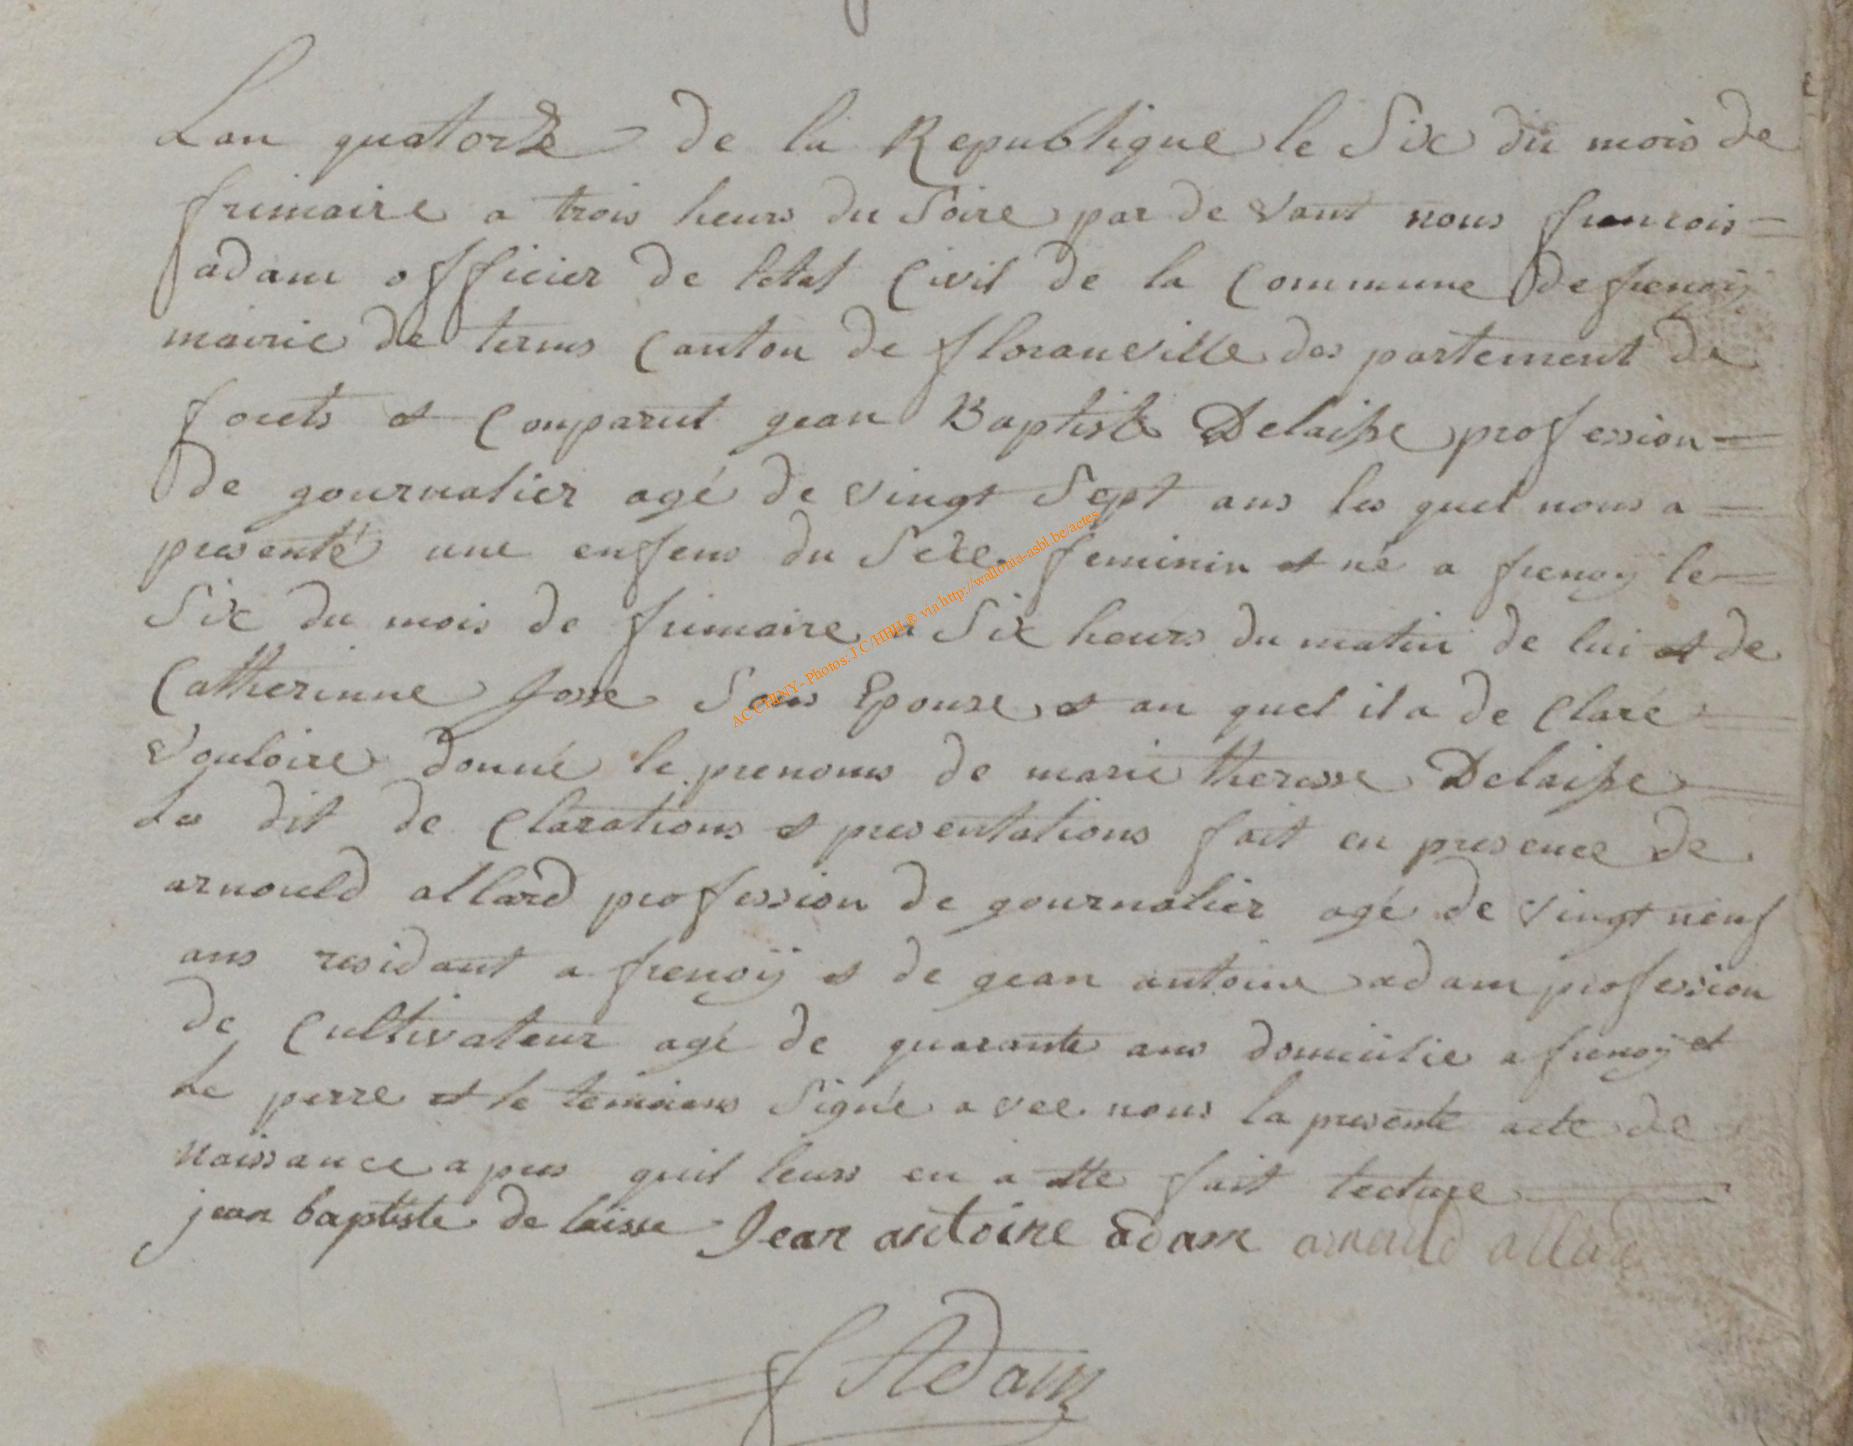 Lan quatorze de la Republique le Six du mois de
frimaire a trois heurs du Soire par de vant nous francois
adam officier de letat Civil de la Commune de frenoÿ
mairie de terms Canton de floranville des partement de
forets et Comparut gean Baptiste Delaisse profession
de gournalier agé de vingt Sept ans les quel nous a
presenté une enfens du Sexe feminin et né a frenoy le
Six du mois de frimaire a Six heurs du matin de lui et de
Catherinne Josse Sons Epouse et au quel il a de Claré
vouloire donné le prenoms de marie theresse Delaisse
Les dit de Clarations et presentations fait en presence de
arnould allard profession de gournalier agé de vingt neuf
ans residant a frenoÿ et de gean antoine adam profession
de Cultivateur agé de quarante ans domicilie a frenoy et
Le perre et le temoiens Signé avec nous la presente acte de
Naissance apres quil leurs en a ette fait lecture
jean baptiste de laisse Jean antoine adam arnould allard
f Adam
ACCHINY - Photos: J C/HBH © via http://wallonia-asbl.be/actes